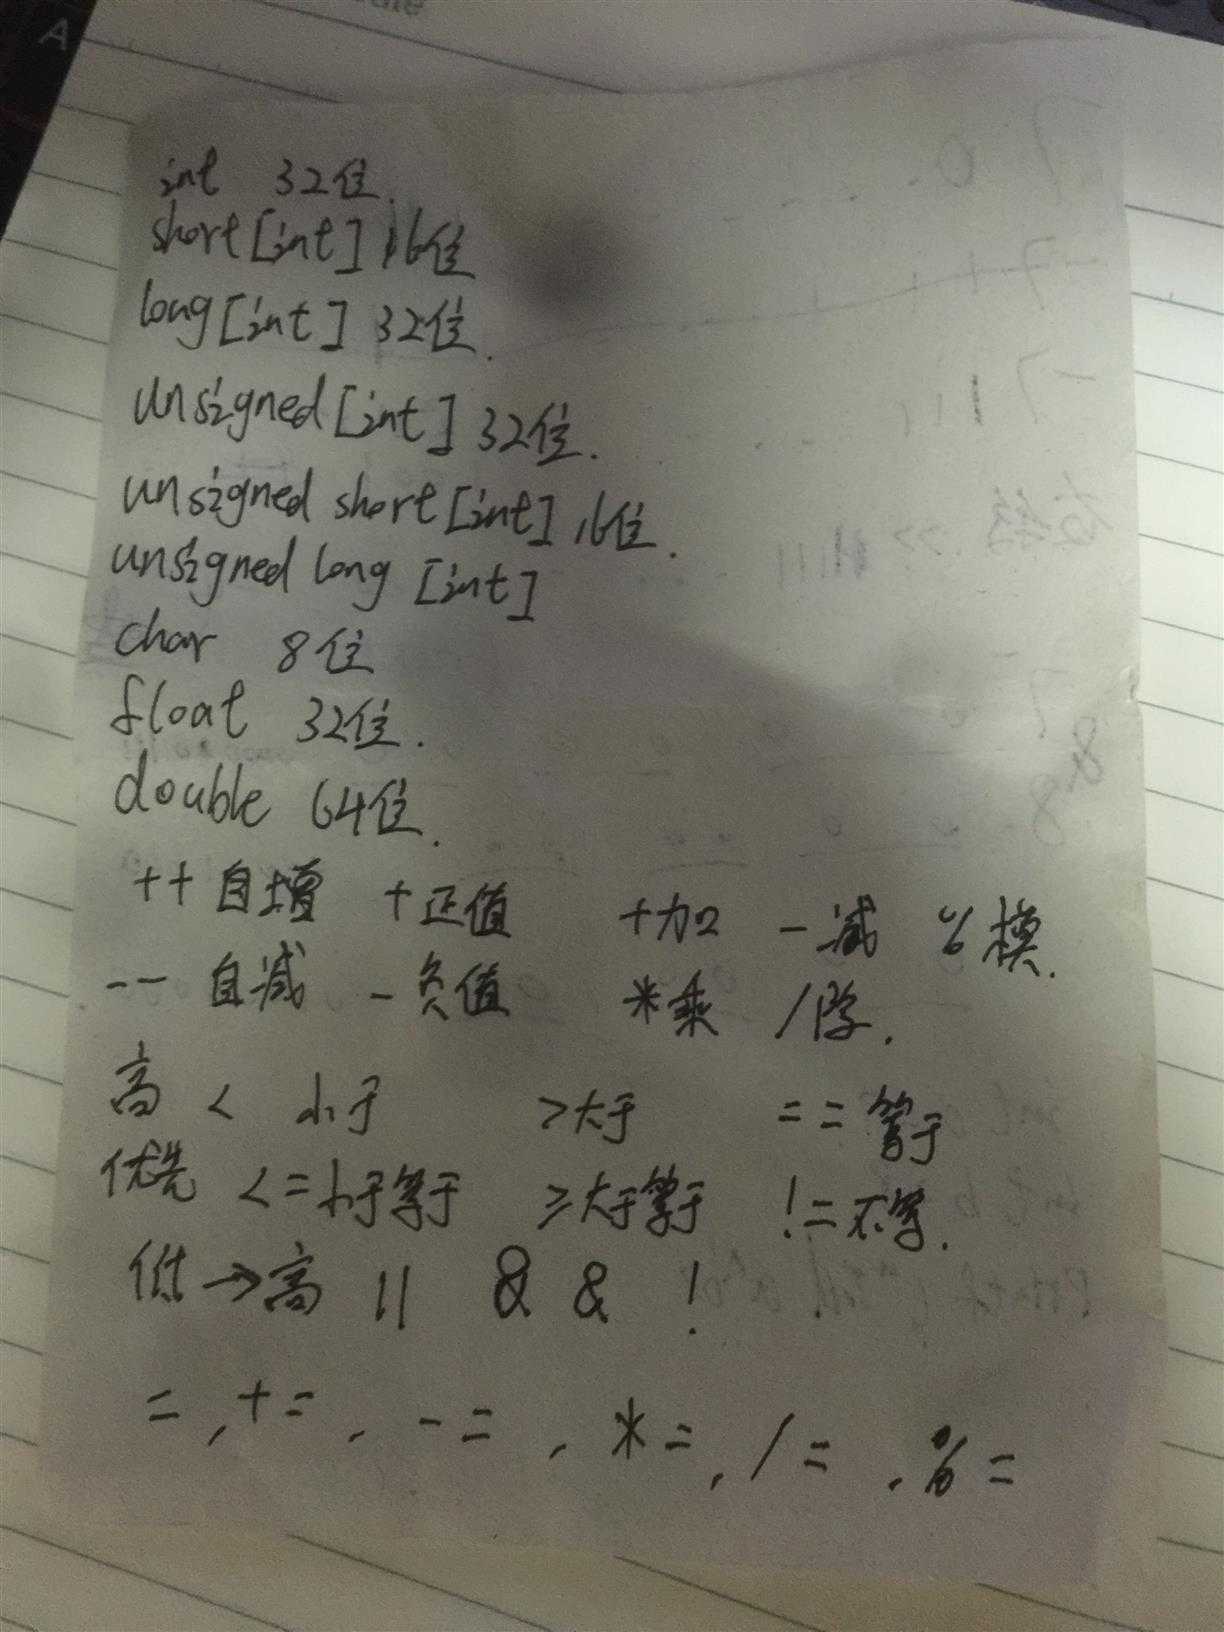 int 32位.
short[int] 16位
long[int] 32位.
unsigned[int] 32位.
unsigned short[int] 16位.
unsigned long [int]
char 8位
float 32位.
double 64位.
++自增 +正值 +加 -减 %模.
-- 自减 -负值 *乘 /除.
高 < 小于 >大于 ==等于
优先 <=小于等于 ≥大于等于 !=不等.
低→高 || && !
=, +=, -=, *=, /=, %=